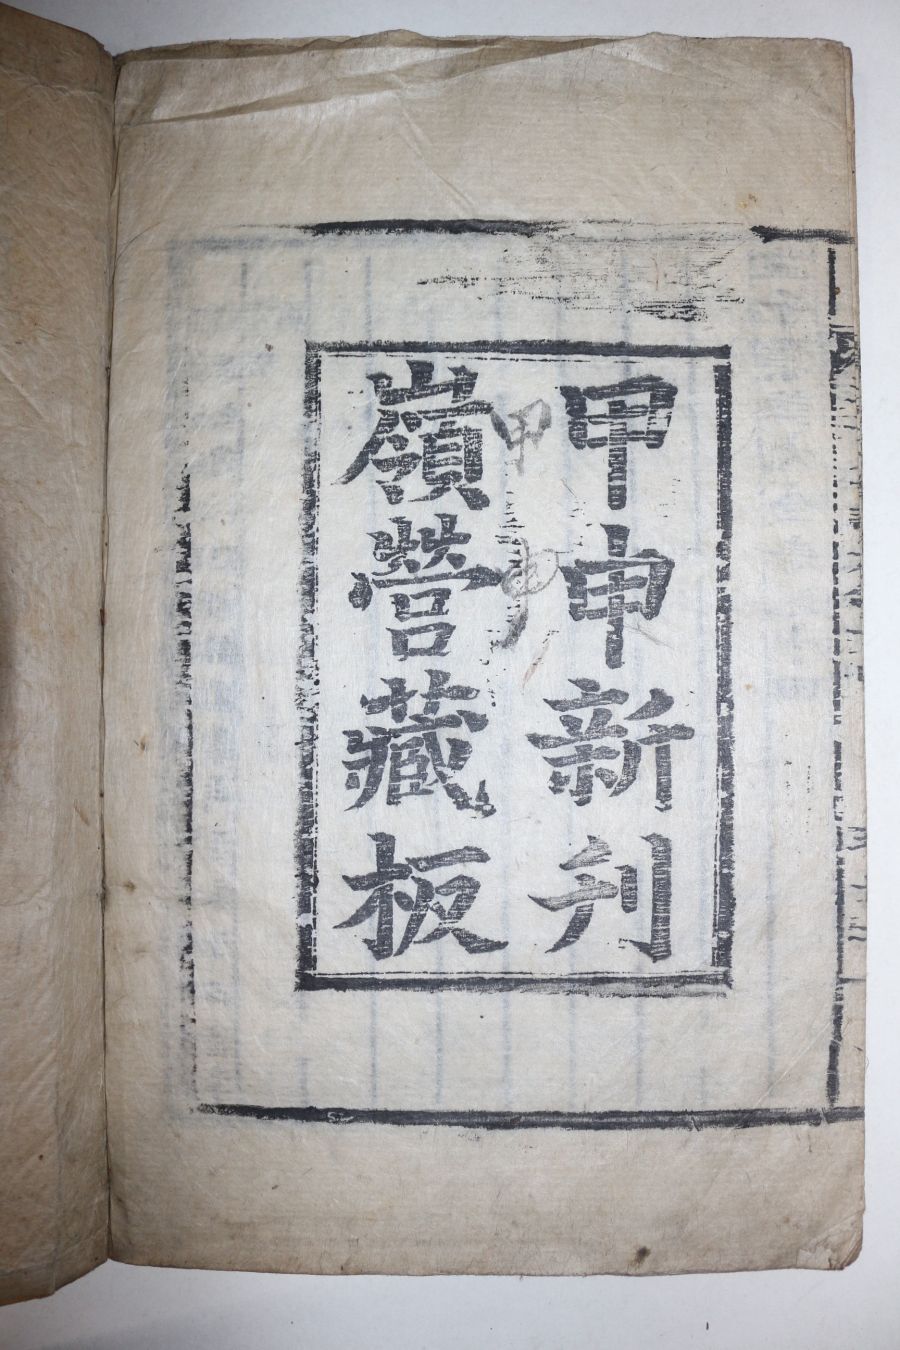 甲申新刋
甲申
嶺營藏板